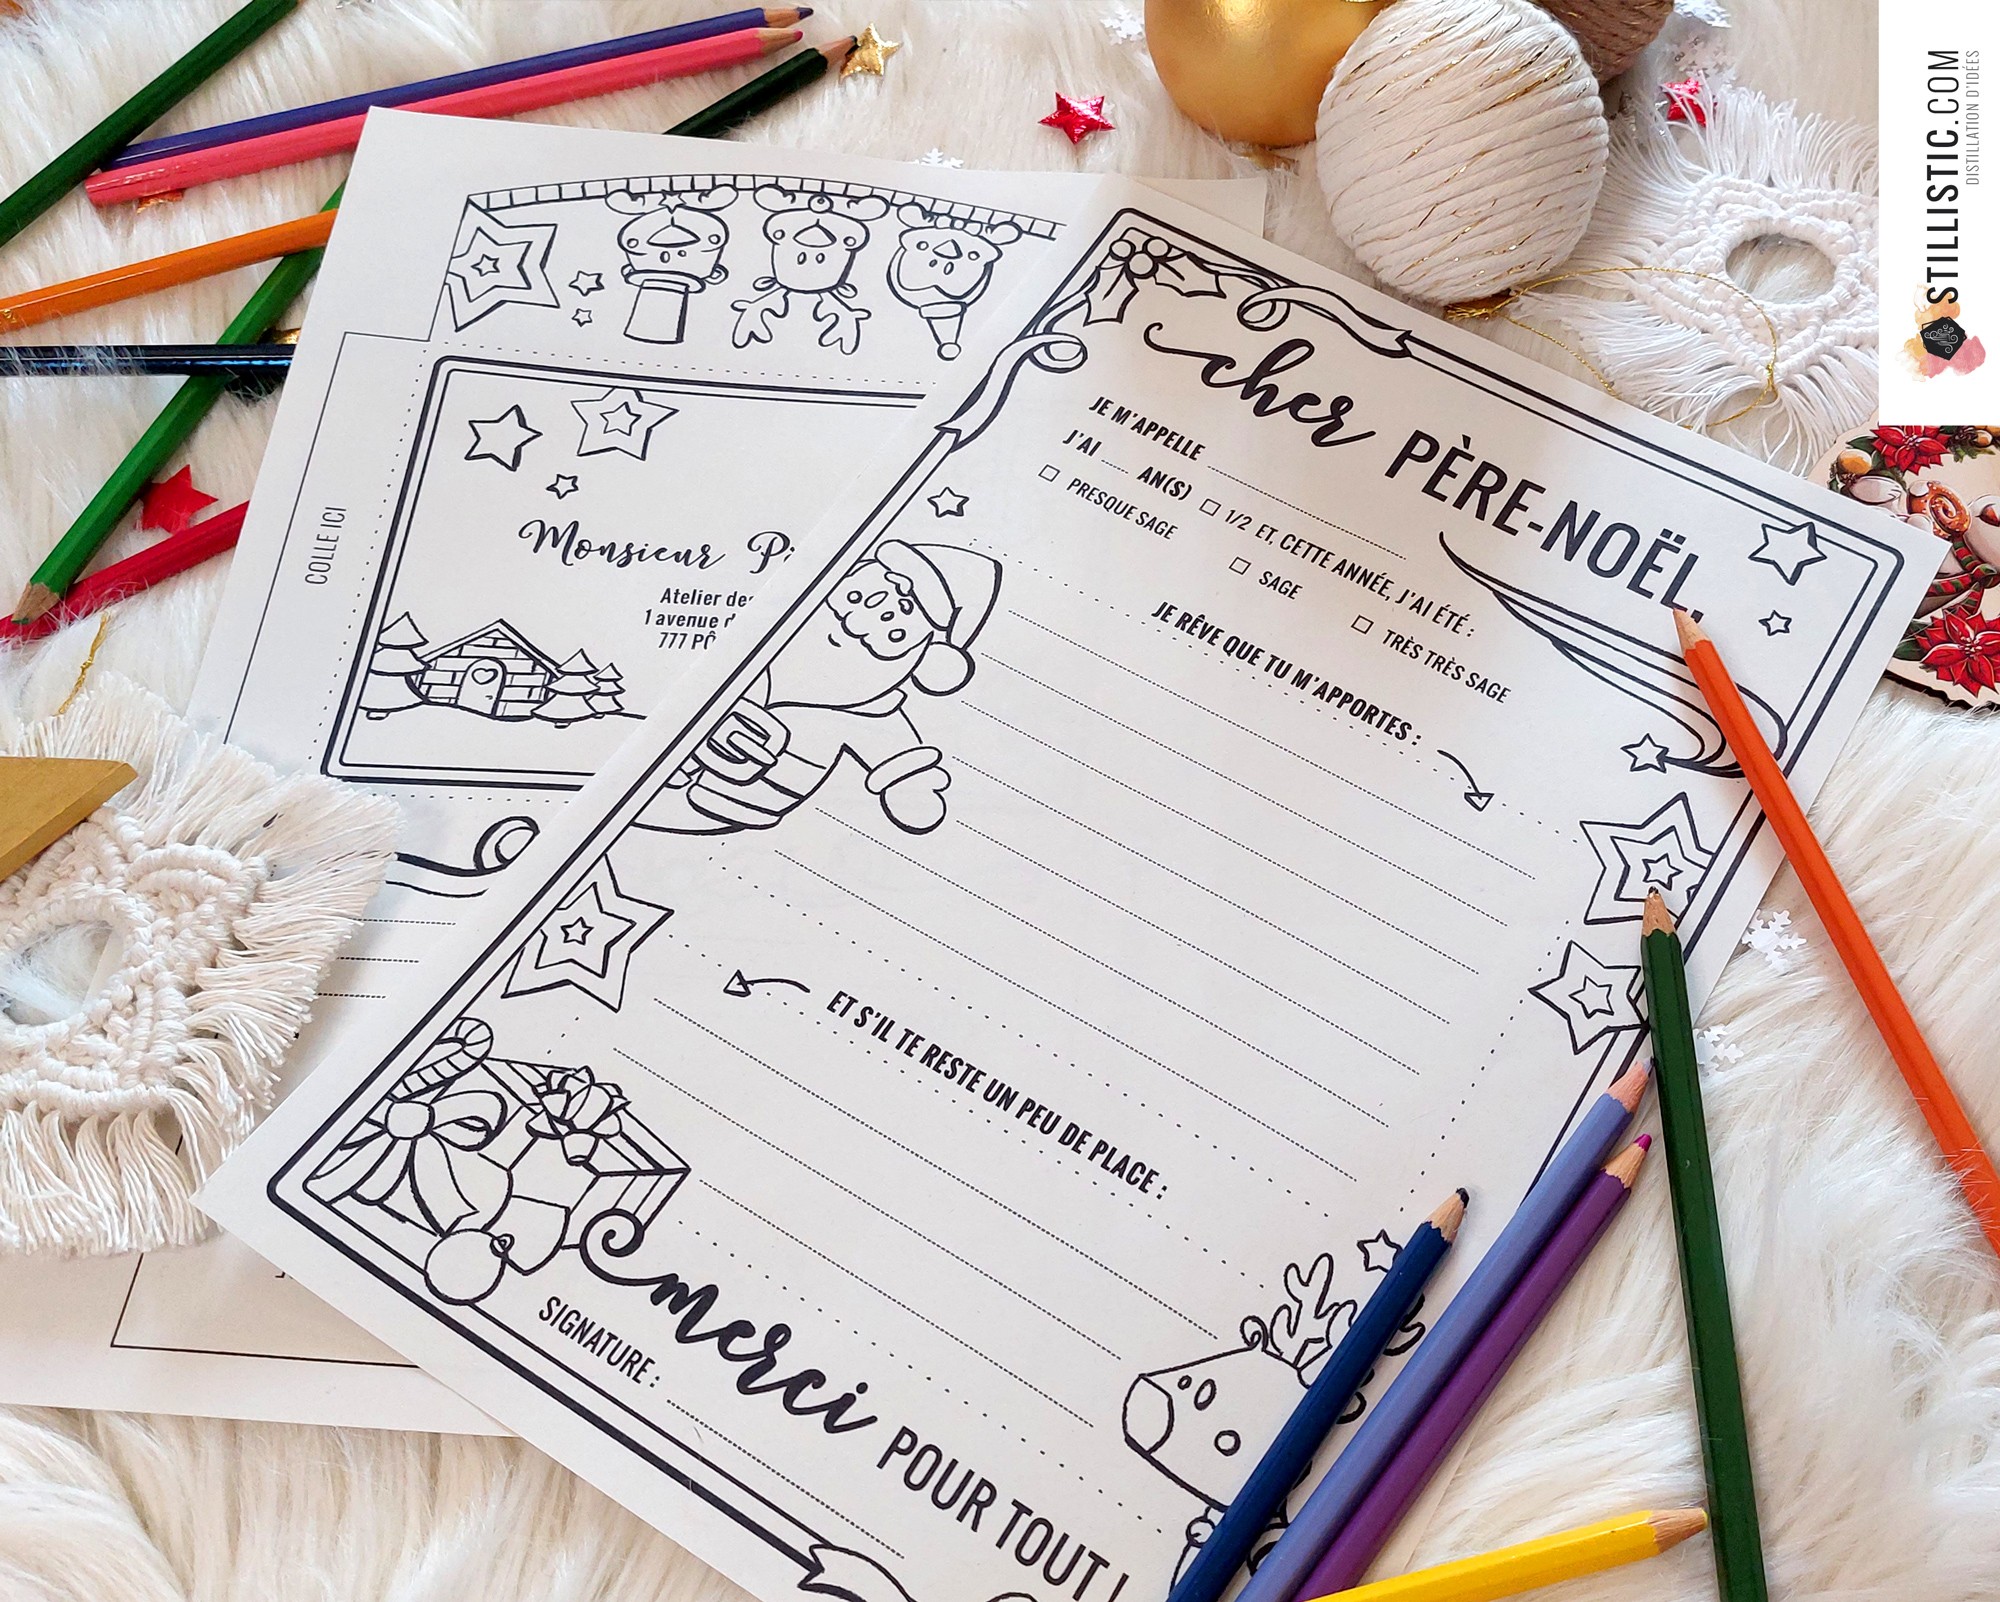 STILLISTIC.COM
DISTILLATION D'IDÉES
cher PÈRE-NOËL,
JE M'APPELLE
J'AI AN(S) 1/2 ET, CETTE ANNÉE, J'AI ÉTÉ :
PRESQUE SAGE SAGE TRÈS TRÈS SAGE
JE RÊVE QUE TU M'APPORTES :
ET S'IL TE RESTE UN PEU DE PLACE :
merci POUR TOUT !
SIGNATURE :
COLLE ICI
Monsieur
Atelier
1 avenue
777